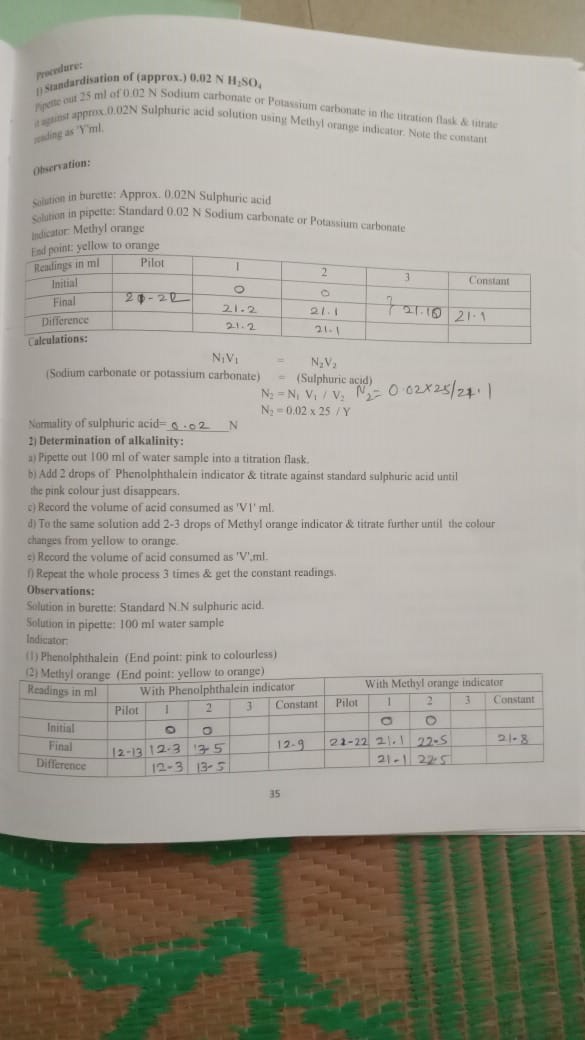 Procedure:
1) Standardisation of (approx.) 0.02 N H₂SO₄
Pipette out 25 ml of 0.02 N Sodium carbonate or Potassium carbonate in the titration flask & titrate
it against approx.0.02N Sulphuric acid solution using Methyl orange indicator. Note the constant
reading as 'Y'ml.
Observation:
Solution in burette: Approx. 0.02N Sulphuric acid
Solution in pipette: Standard 0.02 N Sodium carbonate or Potassium carbonate
Indicator: Methyl orange
End point: yellow to orange
Readings in ml Pilot 1 2 3 Constant
Initial 0 0
Final 21.2 21.1 21.1
Difference 21.2 21.1
Calculations:
N₁V₁ = N₂V₂
(Sodium carbonate or potassium carbonate) = (Sulphuric acid)
N₂ = N₁ V₁ / V₂ N₂= 0.02X25/21.1
N₂ = 0.02 x 25 / Y
Normality of sulphuric acid= 0.02 N
2) Determination of alkalinity:
a) Pipette out 100 ml of water sample into a titration flask.
b) Add 2 drops of Phenolphthalein indicator & titrate against standard sulphuric acid until
the pink colour just disappears.
c) Record the volume of acid consumed as 'V1' ml.
d) To the same solution add 2-3 drops of Methyl orange indicator & titrate further until the colour
changes from yellow to orange.
e) Record the volume of acid consumed as 'V',ml.
f) Repeat the whole process 3 times & get the constant readings.
Observations:
Solution in burette: Standard N.N sulphuric acid.
Solution in pipette: 100 ml water sample
Indicator:
(1) Phenolphthalein (End point: pink to colourless)
(2) Methyl orange (End point: yellow to orange)
Readings in ml With Phenolphthalein indicator With Methyl orange indicator
Pilot 1 2 3 Constant Pilot 1 2 3 Constant
Initial 0 0 0 0
Final 12-13 12.3 13.5 12.9 21-22 21.1 22.5 21.8
Difference 12.3 13.5 21.1 22.5
35